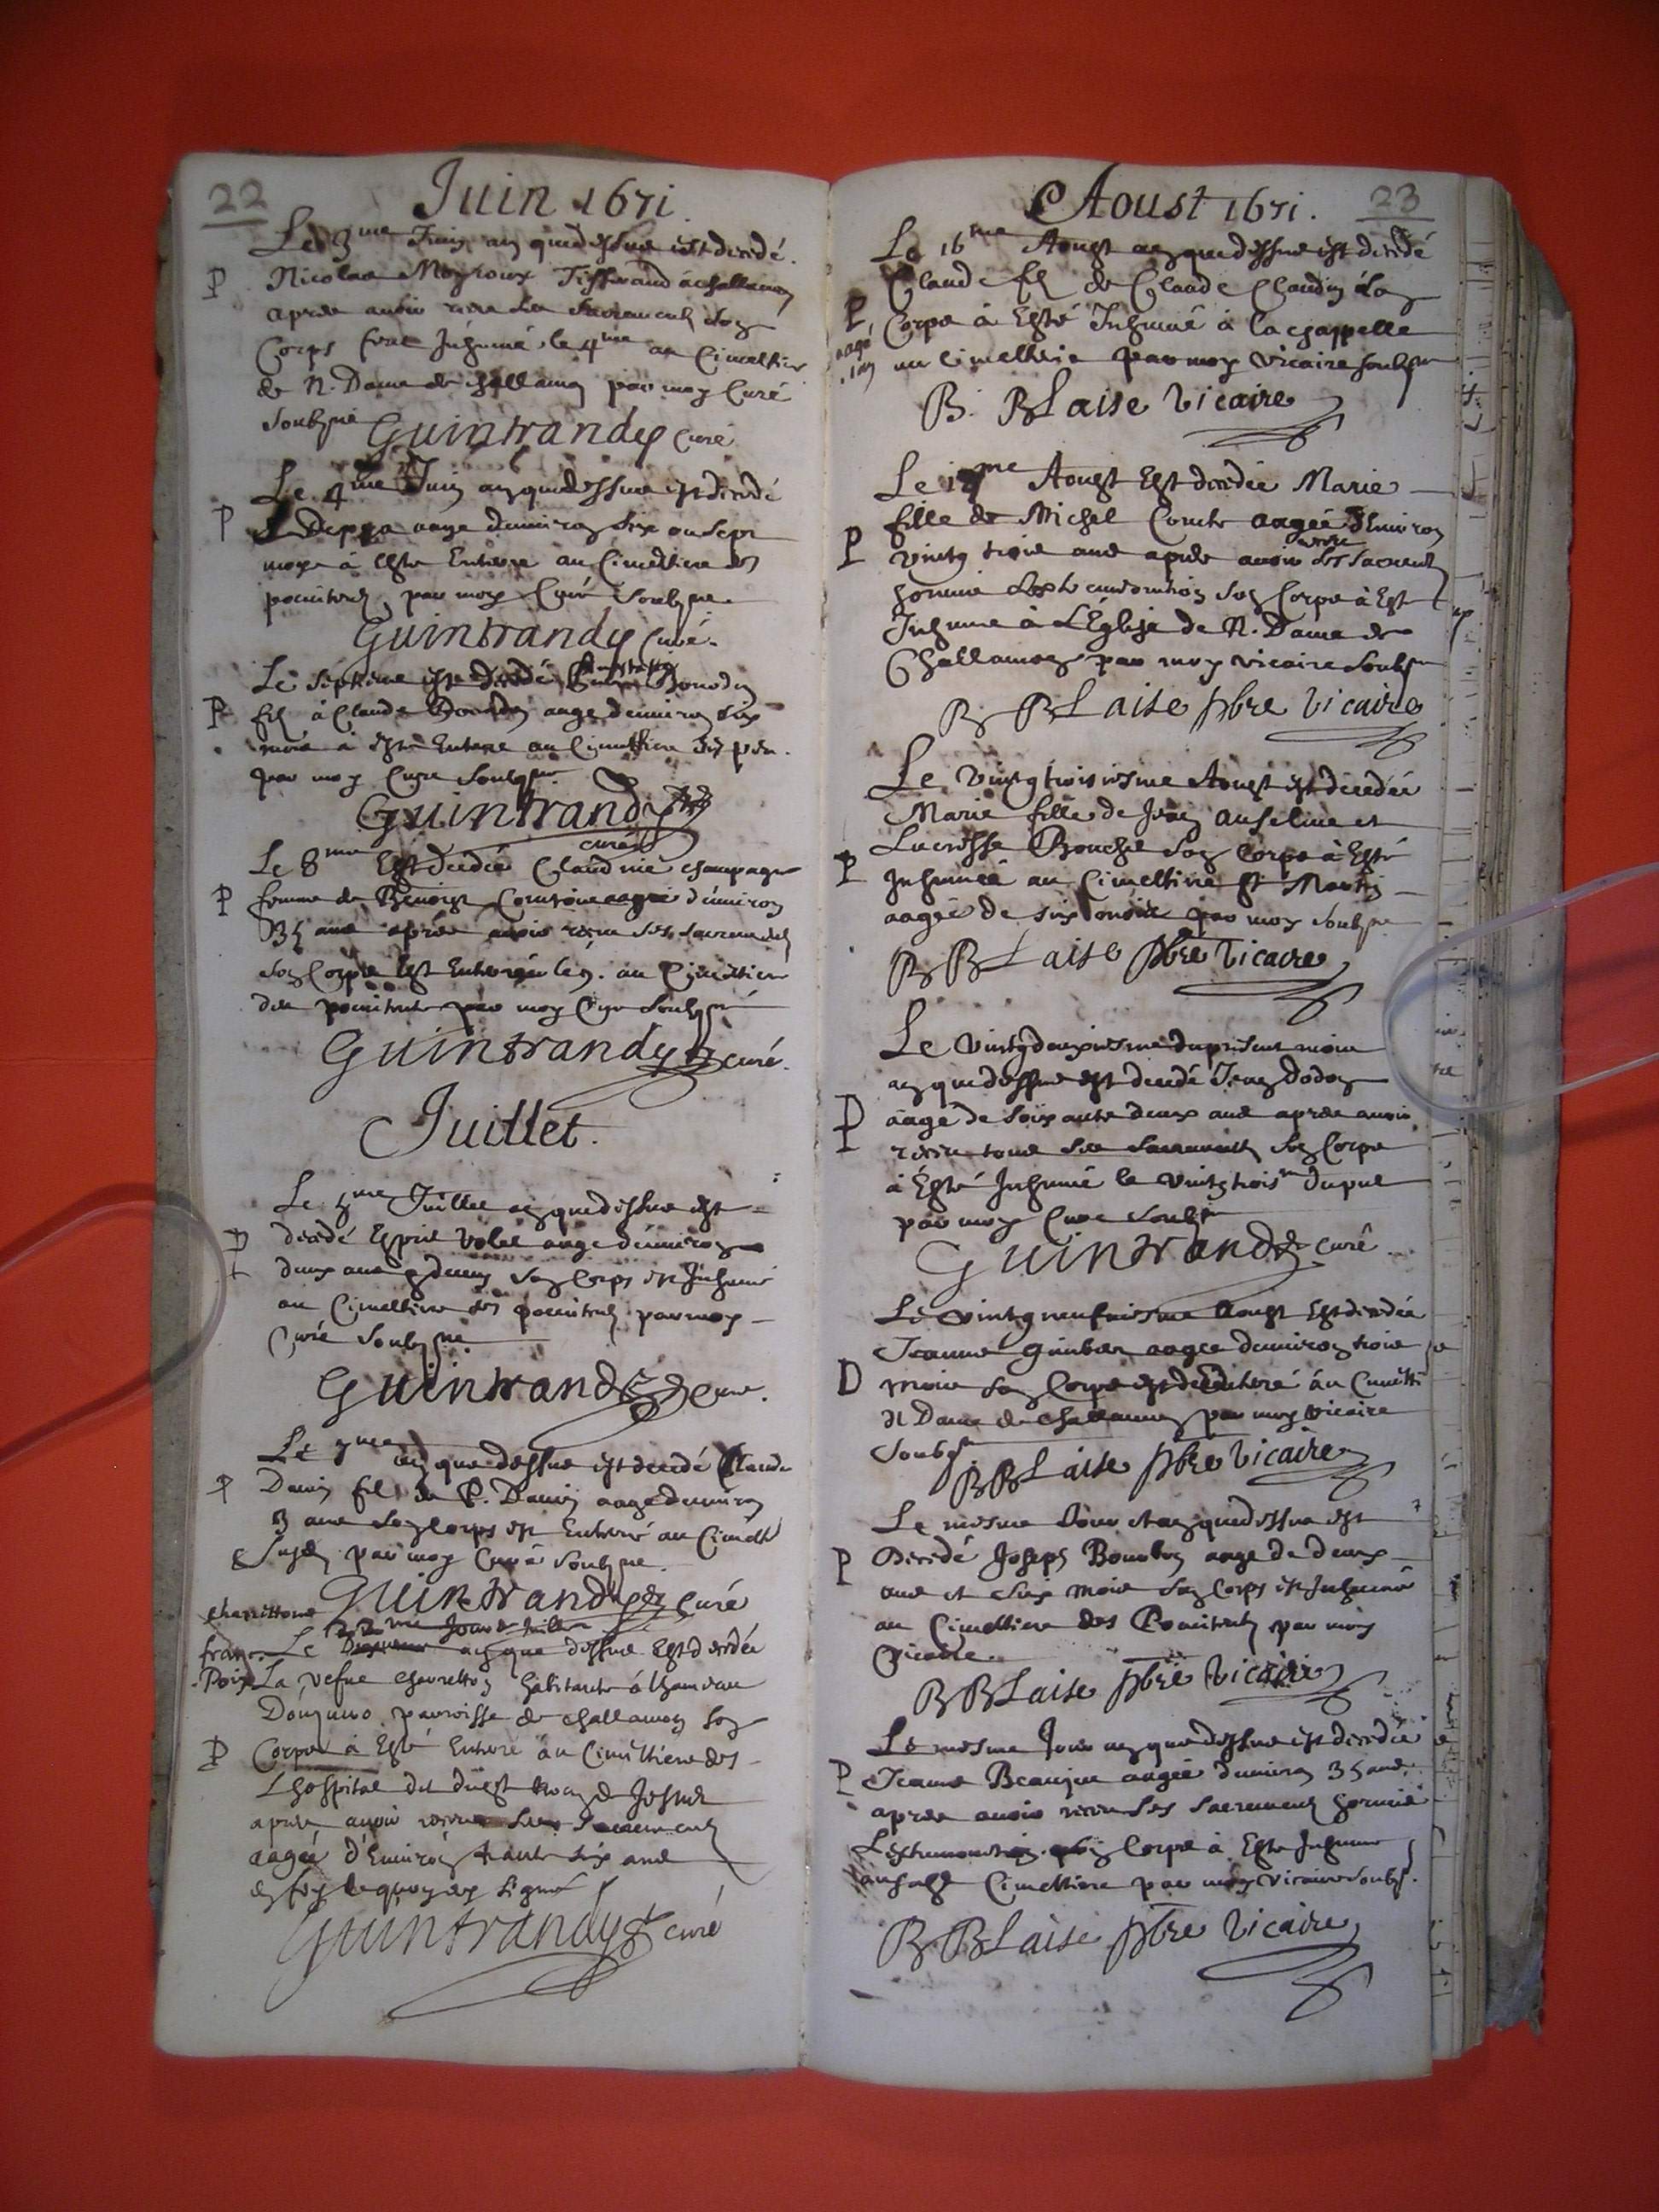 22
Juin 1671.
Le 3me Juin an que dessus est decedé
P Nicolas Moyroux Tisserand a challamon
apres avoir receu les sacrements son
Corps feut Inhumé le 4me au Cimettiere
de N. Dame de challamon par moy Curé
soubsné Guintrandy curé
Le 4me Juin an que dessus est decedé
P aage denviron six ou sept
moys à esté Enterré au Cimettiere des
penitents par moy Curé soubsne
Guintrandy Curé
Le septieme est decedé Bourdin
P fils à Claude Bourdin aage denviron six
mois à esté Enterré au Cimettiere des pen.
par moy Curé soubsne
Guintrandy
curé
Le 8me Est decedée Claudine champagne
P femme de Benoist aagee d'environ
35 ans après avoir receu ses sacrements
son Corps Est Enterré le 9. au Cimettiere
des penitents par moy Curé soubsné
Guintrandy curé.
Juillet.
Le 5me Juillet an que dessus est
P decedé Esprit Volle aage denviron
deux ans & demy son Corps est Inhumé
au Cimettiere des penitents par moy
Curé soubsne
Guintrandy Curé.
Le 7me an que dessus est decedé Claude
P Danis fils de P. Danis aage denviron
3 ans son Corps est Enterré au Cimett
susdt par moy Curé soubsne
Guintrandy curé
Jour de Juillet
franc. Le an que dessus Est decedée
La vefue chevretton habitante á lhameau
parroisse de challamon son
P Corps à Esté Enterré au Cimettiere des
Lhospital
apres avoir receu ses Sacrements
aagée d'Environ trante six ans
en foy de quoy ay signé
Guintrandy curé
23
Aoust 1671.
Le 16me Aoust an que dessus est decedé
Claude fils de Claude Chaudin son
P Corps à Esté Inhumé à la chappelle
aagé
1 an au Cimettiere par moy vicaire soubsne
B. BLaise vicaire
Le me Aoust Est decedée Marie
fille de Michel Comte aagée d'Environ
P vingt trois ans apres avoir receu les sacrements
hormis Lextremonction son Corps à Esté
Inhumé à L'Eglise de N. Dame de
Challamon par moy vicaire soubsne
B BLaise pbre vicaire
Le vingt troisiesme Aoust est decedée
Marie fille de Jean Anselme et
Lucresse Bouche son Corps à Esté
P Inhumée au Cimettiere St Martin
aagée de six mois par moy soubsne
B BLaise pbre vicaire
Le vingt deuxiesme du present mois
an que dessus est decedé Jean Dodon
P aagé de soixante deux ans apres avoir
receu tous ses sacrements son Corps
à Esté Inhumé le vingt troism du pnt
par moy Curé soubsne
Guintrandy curé
Le vingt neufviesme Aoust Est decedée
Jeanne Guinber aagee denviron trois
D mois son Corps est Enterré au Cimett
N Dame de challamon par moy vicaire
soubsne
B BLaise pbre vicaire
Le mesme Jour et an que dessus est
P Decedé Joseph Bourdin aage de deux
ans et six mois son Corps est Inhumé
au Cimettiere des Penitents par moy
Vicaire.
B BLaise pbre vicaire
Le mesme Jour an que dessus est decedée
P Jeanne Beaujeu aagée denviron 35 ans
apres avoir receu ses sacrements hormis
Lextremonction son Corps à Esté Inhumé
au susdt Cimettiere par moy vicaire soubs.
B BLaise pbre vicaire